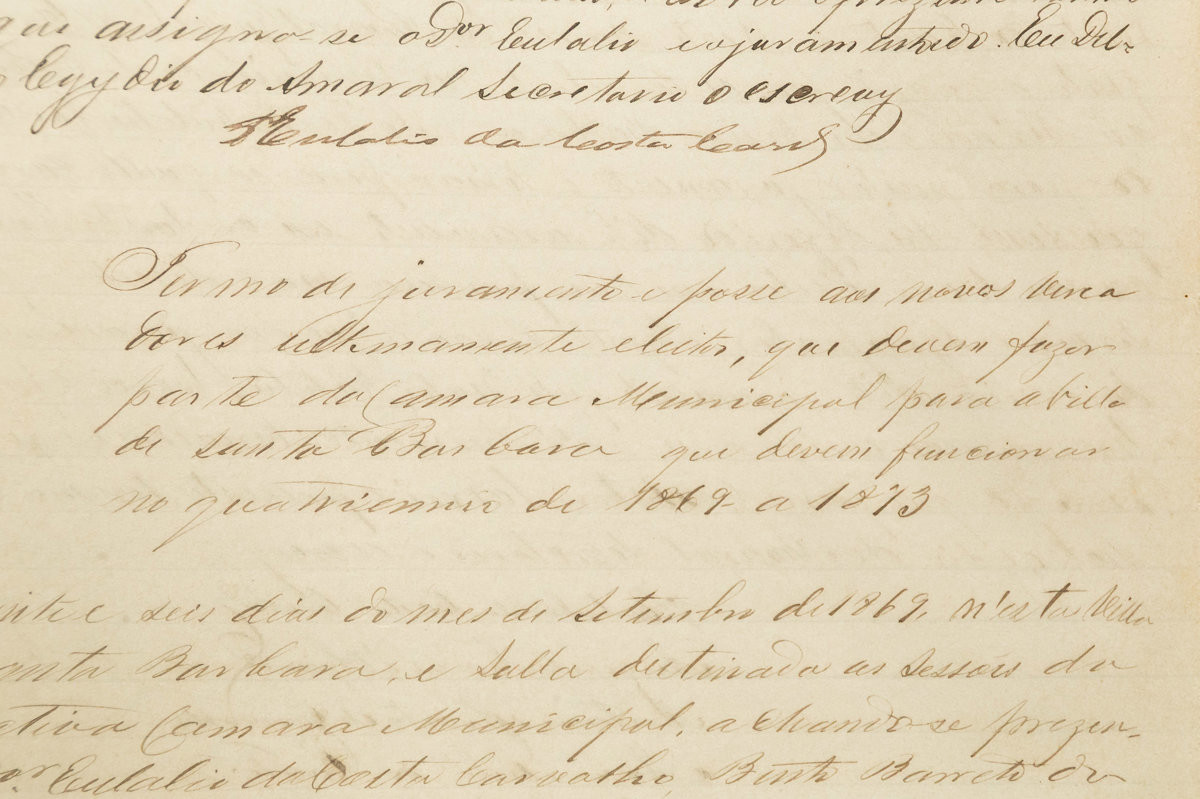 que assigno-se o Dor Eulalio e o juramentado. Eu Del-
Egydio do Amaral Secretario o escrevy
Eulalio da Costa Carv
Termo de juramento e posse aos novos verea
dores ultimamente eleitos, que devem fazer
parte da Camara Municipal para a Villa
de Santa Barbara que devem funcionar
no quatriennio de 1869 a 1873
inte e seis dias do mes de Setembro de 1869, n'esta Villa
anta Barbara, e Salla destinada as Sessões da
ativa Camara Municipal, a chando-se prezen-
or Eulalio da Costa Carvalho, Bento Barreto do